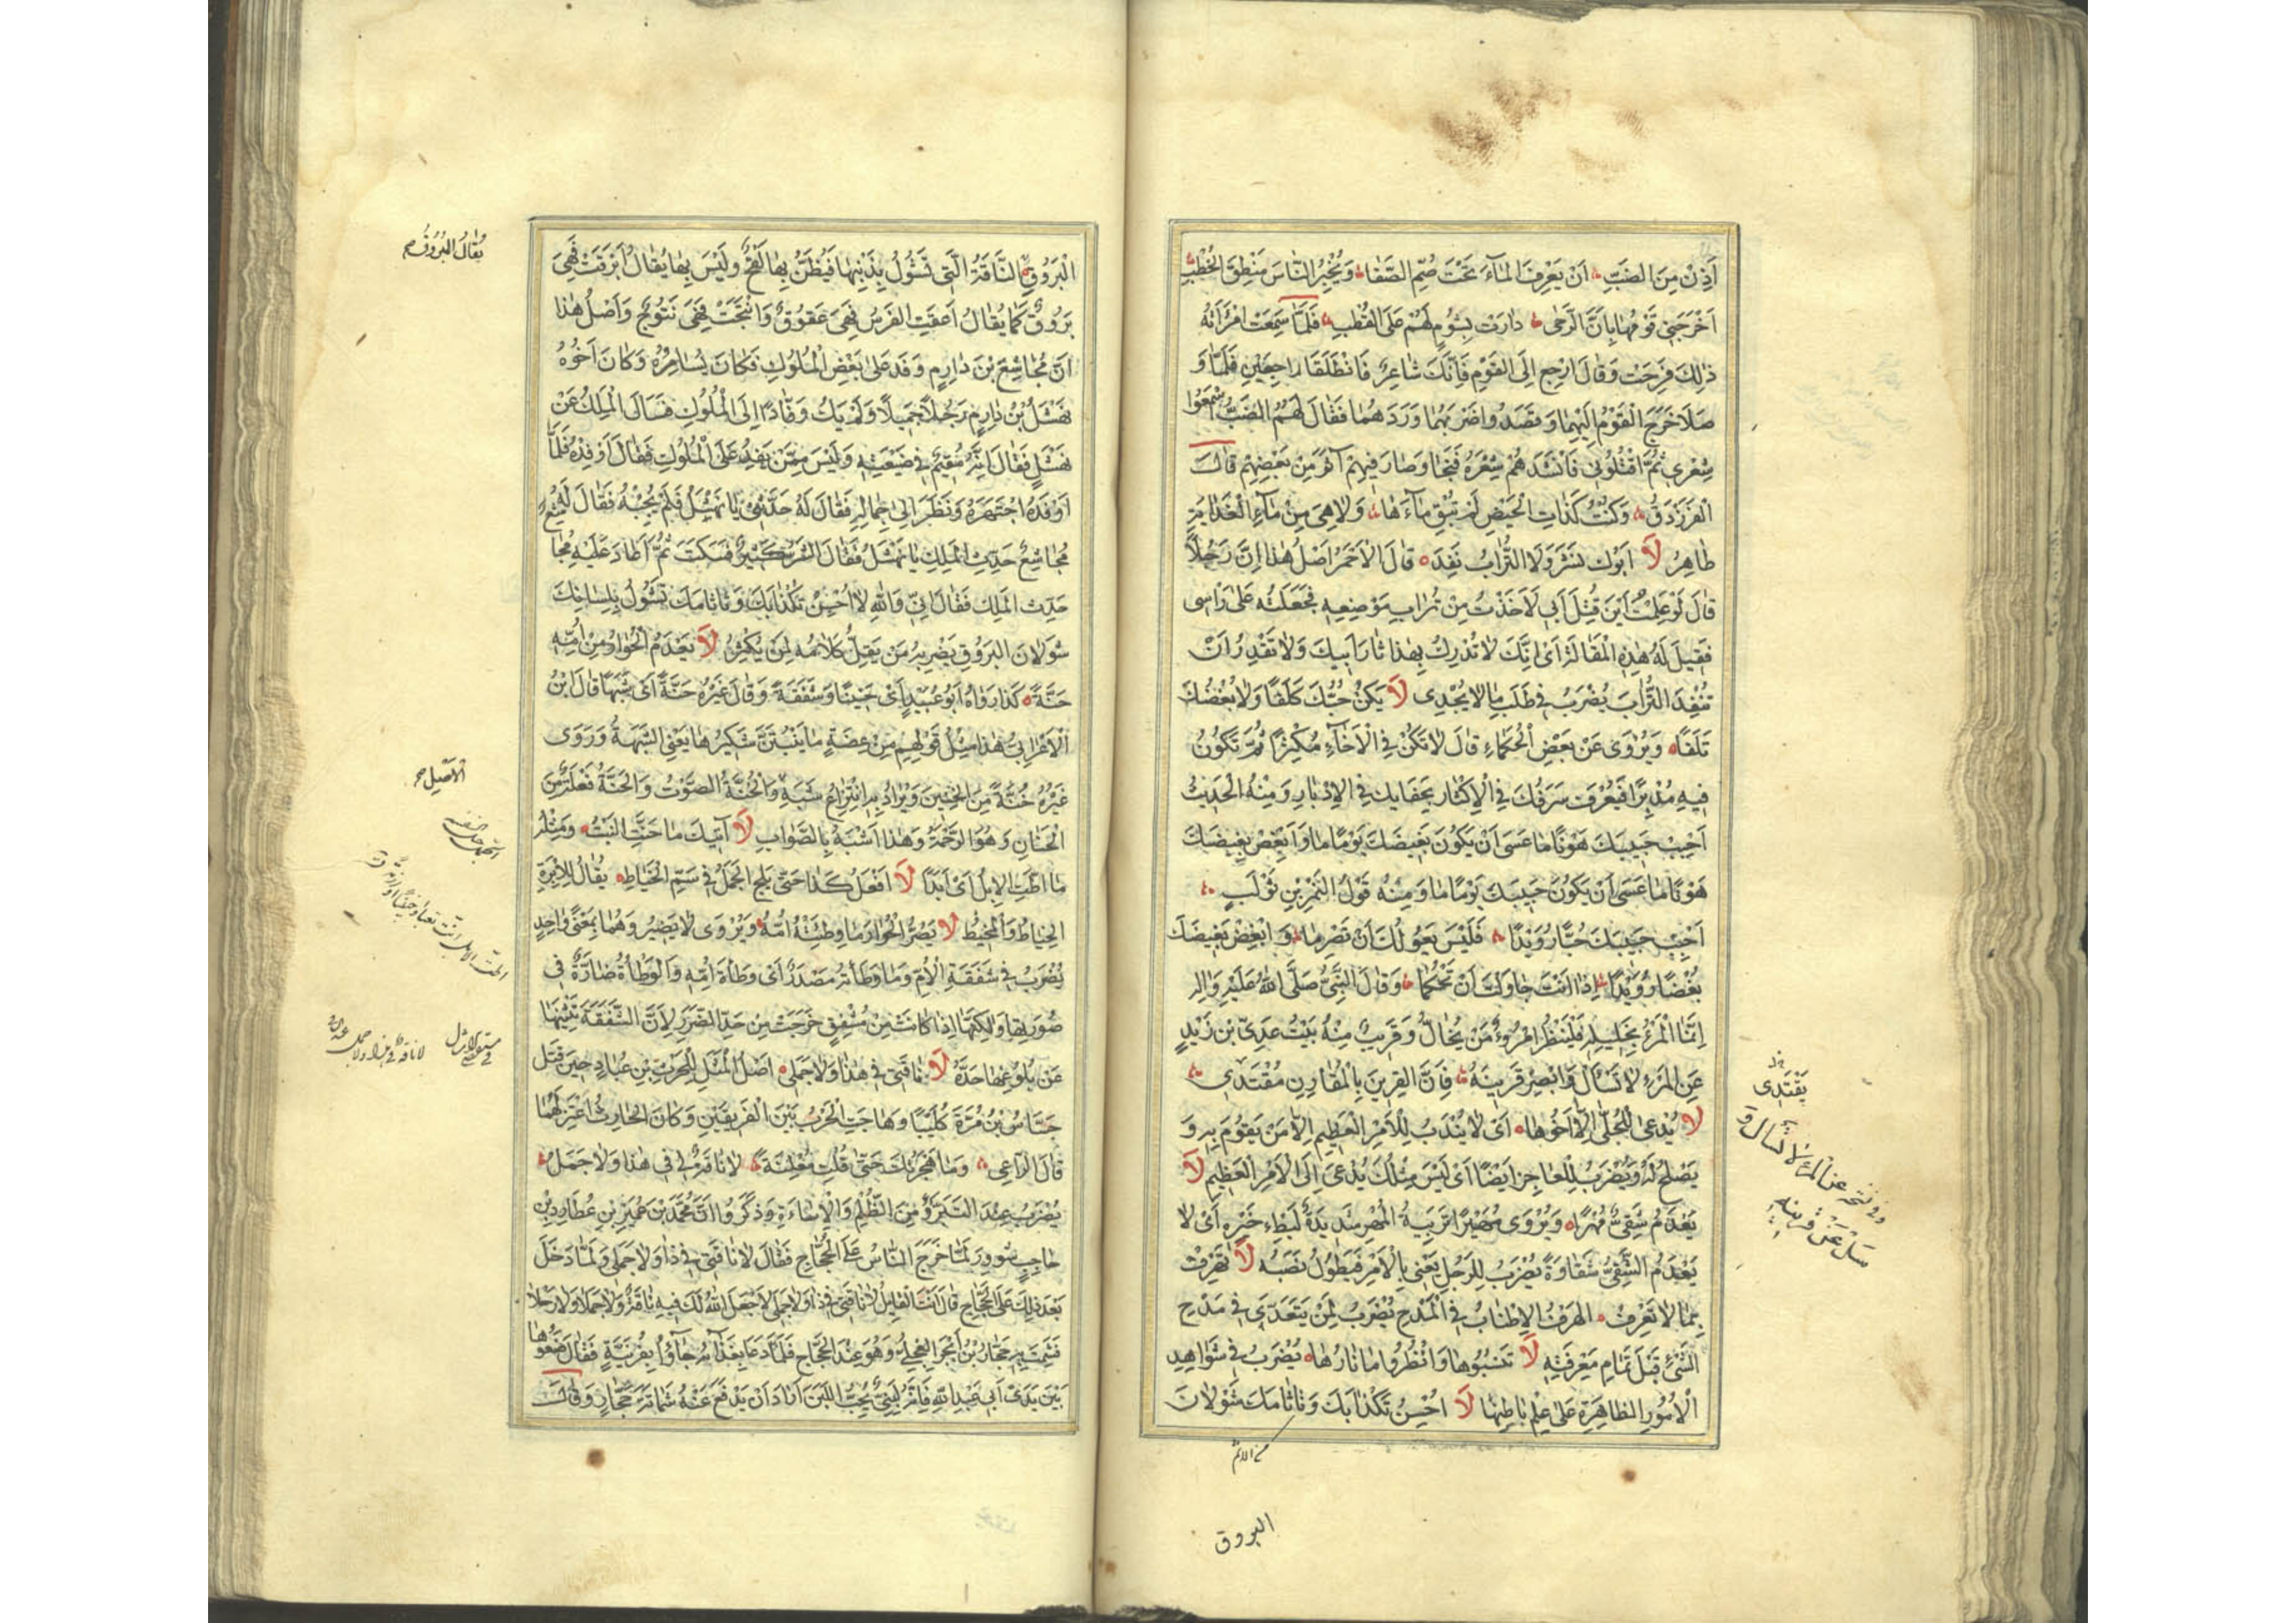 آذَنُ مِنَ الضَّبِّ اَنْ يَعْرِفَ المَاءَ تَحْتَ صُمِّ الصَّفَا وَيُخْبِرُ النَّاسَ مَنْطِقَ الخُطْبِ
اَخْرَجَنِى قَوْمُهَا بِاَنَّ الرَّحٰى دَارَتْ بِشُومٍ لَهُمْ عَلَى القُطْبِ فَلَمَّا سَمِعَتْ امْرَأَتُهُ
ذٰلِكَ فَرِحَتْ وَقَالَ ارْجِع اِلَى القَوْمِ فَاِنَّكَ شَاعِرٌ فَانْطَلَقَا رَاجِعَيْنِ فَلَمَّا وَ
صَلَا خَرَجَ القَوْمُ اِلَيْهِمَا وَقَصَدُوا ضَرْبَهُمَا وَرَدَّهُمَا فَقَالَ لَهُمُ الضَّبُّ اسْمَعُوا
شِعْرِى ثُمَّ اقْتُلُونِى فَاَنْشَدَهُمْ شِعْرَهُ فَنَجَا وَصَارَ فِيهِمْ آثَرَ مِنْ بَعْضِهِمْ قَالَ
الفَرَزْدَقُ وَكُنْتُ كَذَاتِ الحَيْضِ لَمْ تُبْقِ مَاءَهَا وَلَا هِىَ مِنْ مَاءِ العَذَابَةِ
طَاهِرُ لَا اَبُوكَ نُشِرَ وَلَا التُّرَابُ نَفِدَ قَالَ الاَحْمَرُ اَصْلُ هٰذَا اِنَّ رَجُلًا
قَالَ لَوْ عَلِمْتُ اَيْنَ قُتِلَ اَبِى لَاَخَذْتُ مِنْ تُرَابِ مَوْضِعِهِ فَجَعَلْتُه عَلٰى رَاْسِى
فَقِيلَ لَهُ هٰذِهِ المَقَالَة اَىْ اِنَّكَ لَا تُدْرِكُ بِهٰذَا ثَارَ اَبِيكَ وَلَا تَقْدِرُ اَنْ
تُنْفِدَ التُّرَابَ يُضْرَبُ فِى طَلَبِ مَا لَا يُجْدِى لَا يَكُنْ حُبُّكَ كَلَفًا وَلَا بُغْضُكَ
تَلَفًا وَيُرْوٰى عَنْ بَعْضِ الحُكَمَاءِ قَالَ لَا تَكُنْ فِى الاِخَاءِ مُكْثِرًا ثُمَّ تَكُونُ
فِيهِ مُدْبِرًا فَيُعْرَفَ سَرَفُكَ فِى الاِكْثَارِ بِجَفَائِكَ فِى الاِدْبَارِ وَمِنْهُ الحَدِيثُ
اَحْبِبْ حَبِيبَكَ هَوْنًا مَا عَسَى اَنْ يَكُونَ بَغِيضَكَ يَوْمًا مَا وَاَبْغِضْ بَغِيضَكَ
هَوْنًا مَا عَسَى اَنْ يَكُونَ حَبِيبَكَ يَوْمًا مَا وَمِنْهُ قَوْلُ النَّمِرِ بْنِ تَوْلَبٍ
اَحْبِبْ حَبِيبَكَ حُبًّا رُوَيْدًا فَلَيْسَ يَعُولُكَ اَنْ تَصْرِمَا وَ ابْغِضْ بَغِيضَكَ
بُغْضًا رُوَيْدًا اِذَا اَنْتَ حَاوَلْتَ اَنْ تَحْكُمَا وَقَالَ النَّبِىُّ صَلَّى اللّٰهُ عَلَيْهِ وَاٰلِهِ
اِنَّمَا المَرْءُ بِخَلِيلِهِ فَلْيَنْظُرِ امْرُؤٌ مَنْ يُخَالُّ وَقَرِيبٌ مِنْهُ بَيْتُ عَدِىِّ بْنِ زَيْدٍ
عَنِ المَرْءِ لَا تَسْأَلْ وَابْصِرْ قَرِينَهُ فَاِنَّ القَرِينَ بِالمُقَارِنِ مُقْتَدِى
لَا يُدْعٰى لِلْجُلّٰى اِلَّا اَخُوهَا اَىْ لَا يُنْدَبُ لِلْاَمْرِ العَظِيمِ اِلَّا مَنْ يَقُومُ بِهِ وَ
يَصْلُحُ لَهُ وَيُضْرَبُ لِلْعَاجِزِ اَيْضًا اَىْ لَيْسَ مِثْلُكَ يُدْعٰى اِلَى الاَمْرِ العَظِيمِ لَا
يَعْدَمُ شَقِىٌّ مُهْرًا وَيُرْوٰى مُهَيْرًا تَرْبِيَةُ المُهْرِ شَدِيدَةٌ لِبُطْءِ خَيْرِهِ اَىْ لَا
يَعْدَمُ الشَّقِىُّ شَقَاوَةً يُضْرَبُ لِلرَّجُلِ يُعْنٰى بِالاَمْرِ فَيَطُولُ نَصَبُهُ لَا تَهْرِفْ
بِمَا لَا تَعْرِفُ الهَرْفُ الاِطْنَابُ فِى المَدْحِ يُضْرَبُ لِمَنْ يَتَعَدّٰى فِى مَدْحِ
الشَّىْءِ قَبْلَ تَمَامِ مَعْرِفَتِهِ لَا تَنْسُبُوهَا وَانْظُرُوا مَا نَارُهَا يُضْرَبُ فِى شَوَاهِدِ
الاُمُورِ الظَّاهِرَةِ عَلٰى عِلْمِ بَاطِنِهَا لَا اُحْسِنُ تَكْذَابَكَ وَتَاثَامَكَ شَوَلَانَ
يَقْتَدِى
وفى نسخة عن المرء لا تسأل و
سَلْ عَنْ قرينه
من الاثم
البروق
الْبَرُوقِ النَّاقَةُ الَّتِى تَشُولُ بِذَنَبِهَا فَيُظَنُّ بِهَا لَقَحٌ وَلَيْسَ بِهَا يُقَالُ اَبْرَقَتْ فَهِىَ
بَرُوقٌ كَمَا يُقَالُ اَعَقَّتِ الفَرَسُ فَهِىَ عَقُوقٌ وَانْتَجَتْ فَهِىَ نَتُوجٌ وَاَصْلُ هٰذَا
اَنَّ مُجَاشِعَ بْنَ دَارِمٍ وَفَدَ عَلٰى بَعْضِ المُلُوكِ فَكَانَ يُسَامِرُهُ وَكَانَ اَخُوهُ
نَهْشَلُ بْنُ دَارِمٍ رَجُلًا جَمِيلًا وَلَمْ يَكُ وَفَّادًا اِلَى المُلُوكِ فَسَاَلَ المَلِكُ عَنْ
نَهْشَلٍ فَقَالَ اِنَّهُ مُقِيمٌ فِى ضَيْعَتِهِ وَلَيْسَ مِمَّنْ يَفِدُ عَلَى المُلُوكِ فَقَالَ اَوْفِدْهُ فَلَمَّا
اَوْفَدَهُ اجْتَهَرَهُ وَنَظَرَ اِلٰى جَمَالِهِ فَقَالَ لَهُ حَدِّثْنِى يَا نَهْشَلُ فَلَمْ يُجِبْهُ فَقَالَ لَهُ
مُجَاشِعٌ حَدِّثِ المَلِكَ يَا نَهْشَلُ فَقَالَ الشَّرُّ كَثِيرٌ فَسَكَتَ ثُمَّ اَعَادَ عَلَيْهِ مُجَا
حَدِّثِ المَلِكَ فَقَالَ اِنِّى وَاللّٰهِ لَا اُحْسِنُ تَكْذَابَكَ وَتَاثَامَكَ تَشُولُ بِلِسَانِكَ
شَوَلَانَ البَرُوقِ يَضْرِبُهُ مَنْ يَقِلُّ كَلَامُهُ لِمَنْ يُكْثِرُ لَا يَعْدَمُ الحُوَارُ مِنْ اُمِّهِ
حَنَّةً كَذَا رَوَاهُ اَبُو عُبَيْدٍ اَىْ حَنِينًا وَشَفَقَةً وَقَالَ غَيْرُهُ حَنَّةً اَىْ شَبَهًا قَالَ ابْنُ
الاَعْرَابِىِّ هٰذَا مِثْلُ قَوْلِهِمْ مِنْ عِضَةٍ مَا يَنْبُتَنَّ شَكِيرُهَا يَعْنِى الشَّبَهَ وَرَوٰى
غَيْرُهُ حَنَّةً مِنَ الحَنِينِ وَيُرَادُ بِهِ انْتِزَاعُ شَبَهٍ وَالحَنَّةُ الصَّوْتُ وَالحَنَّةُ فَعْلَةٌ مِنَ
الحَنَانِ وَهُوَ الرَّحْمَةُ وَهٰذَا اَشْبَهُ بِالصَّوَابِ لَا آتِيكَ مَا حَنَّتِ النِّيبُ وَمِثْلُهُ
مَا اَطَّتِ الاِبِلُ اَىْ اَبَدًا لَا اَفْعَلُ كَذَا حَتّٰى يَلِجَ الجَمَلُ فِى سَمِّ الخِيَاطِ يُقَالُ لِلْاِبْرَةِ
الخِيَاطُ وَالمِخْيَطُ لَا يَضُرُّ الحُوَارَ مَا وَطِئَتْهُ اُمُّهُ وَيُرْوٰى لَا يَضِيرُ وَهُمَا بِمَعْنًى وَاحِدٍ
يُضْرَبُ فِى شَفَقَةِ الاُمِّ وَمَا وَطَاَتْهُ مَصْدَرٌ اَىْ وَطْاَةَ اُمِّهِ وَالوَطْاَةُ ضَارَّةٌ فِى
صُورَتِهَا وَلٰكِنَّهَا اِذَا كَانَتْ مِنْ مُشْفِقٍ خَرَجَتْ مِنْ حَدِّ الضَّرَرِ لِاَنَّ الشَّفَقَةَ تَثْنِيهَا
عَنْ بُلُوغِهَا حَدَّهُ لَا نَاقَتِى فِى هٰذَا وَلَا جَمَلِى اَصْلُ المَثَلِ لِلْحٰرِثِ بْنِ عُبَادٍ حِينَ قَتَلَ
جَسَّاسُ بْنُ مُرَّةَ كُلَيْبًا وَهَاجَتِ الحَرْبُ بَيْنَ الفَرِيقَيْنِ وَكَانَ الحَارِثُ اعْتَزَلَهُمَا
قَالَ الرَّاعِى وَمَا هَجَرْتُكِ حَتّٰى قُلْتِ مُعْلِنَةً لَا نَاقَةٌ لِى فِى هٰذَا وَلَا جَمَلُ
يُضْرَبُ عِنْدَ التَّبَرُّؤِ مِنَ الظُّلْمِ وَالاِسَاءَةِ وَذَكَرُوا اَنَّ مُحَمَّدَ بْنَ عُمَيْرِ بْنِ عُطَارِدِ بْنِ
حَاجِبٍ لَمَّا خَرَجَ النَّاسُ عَلَى الحَجَّاجِ فَقَالَ لَا نَاقَتِى فِى ذَا وَلَا جَمَلِى وَلَمَّا دَخَلَ
بَعْدَ ذٰلِكَ عَلَى الحَجَّاجِ قَالَ اَنْتَ القَائِلُ لَا نَاقَتِى فِى ذَا وَلَا جَمَلِى لَا جَعَلَ اللّٰهُ لَكَ فِيهِ نَاقَةً وَلَا جَمَلًا وَلَا رَحْلًا
فَشَمِتَ بِهِ حَجَّارُ بْنُ اَبْجَرَ العِجْلِىُّ وَهُوَ عِنْدَ الحَجَّاجِ فَلَمَّا دَعَا بِغَدَائِهِ جَاؤُا بِفُرْنِيَّةٍ فَقَالَ ضَعُوهَا
بَيْنَ يَدَىْ اَبِى عَبْدِ اللّٰهِ فَاِنَّهُ لَبَنِىٌّ يُحِبُّ اللَّبَنَ اَرَادَ اَنْ يَدْفَعَ عَنْهُ شَمَاتَةَ حَجَّارٍ وَقَالَ
يُقَالُ البَرُوقُ
الاَصْل